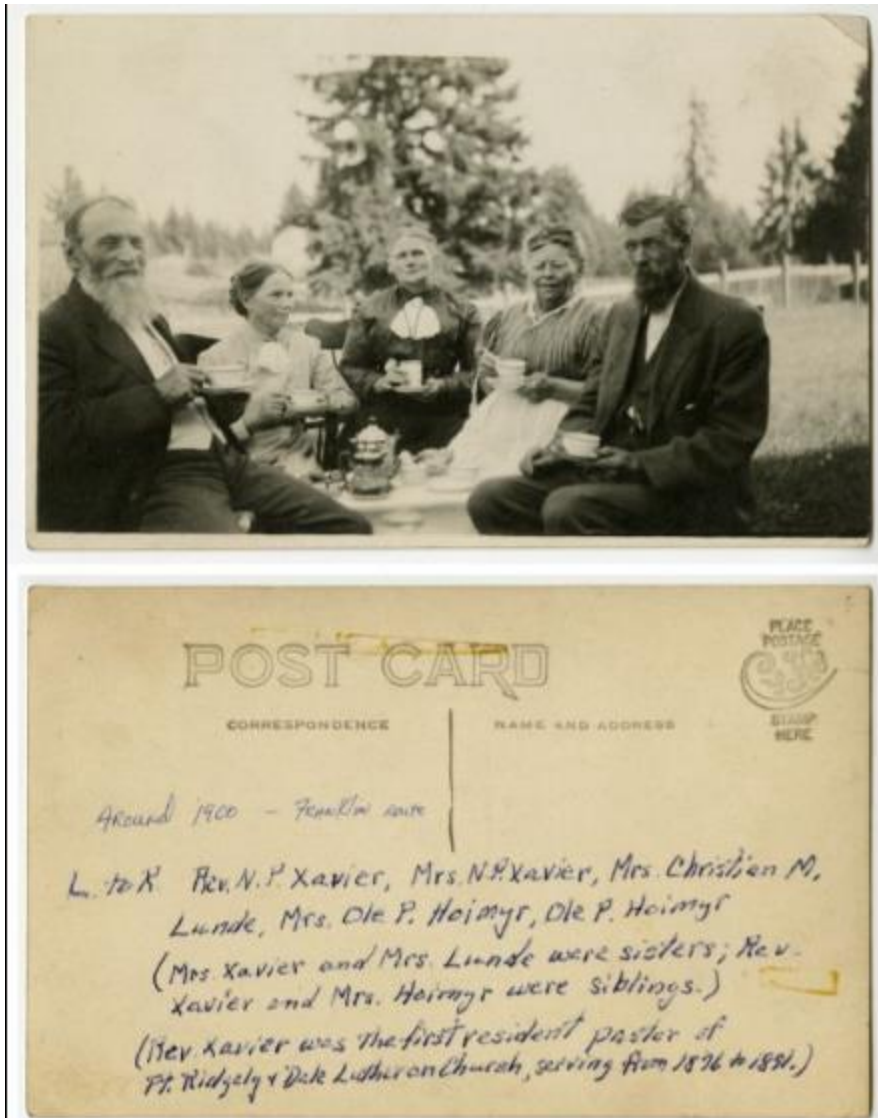 POST CARD
PLACE
POSTAGE
STAMP
HERE
CORRESPONDENCE
NAME AND ADDRESS
Around 1900 - Franklin
L. to R Rev. N. P. Xavier, Mrs. N. P. Xavier, Mrs. Christian M.
Lunde, Mrs. Ole P. Hoimyr, Ole P. Hoimyr
(Mrs. Xavier and Mrs. Lunde were sisters; Rev.
Xavier and Mrs. Hoimyr were siblings.)
(Rev. Xavier was the first resident pastor of
Ft. Ridgely & Dale Lutheran Church, serving from 1876 to 1881.)